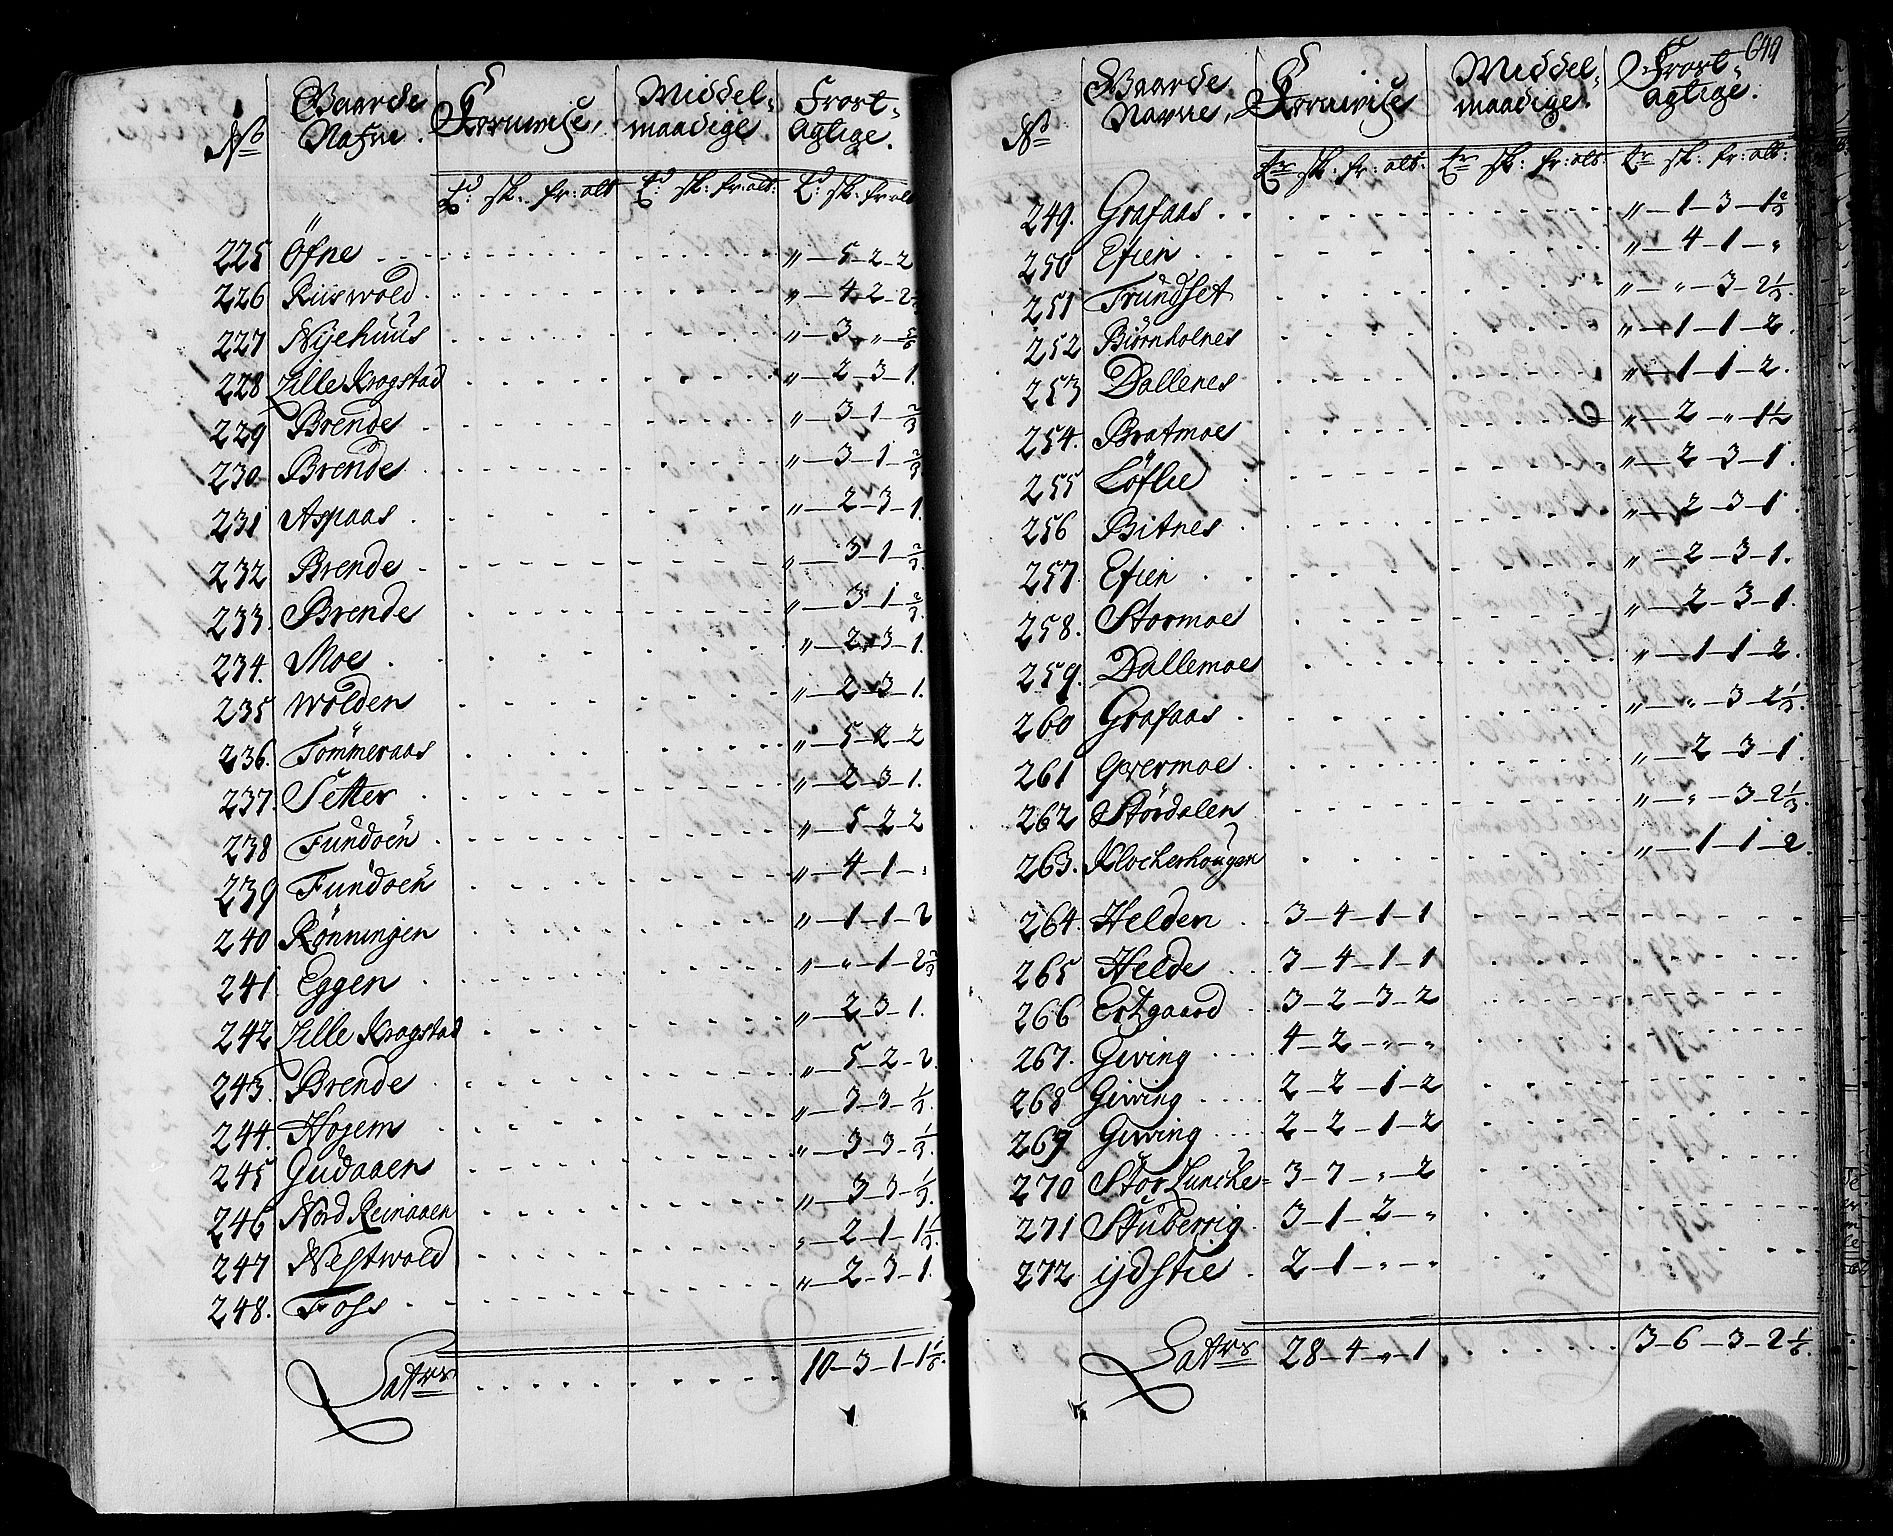 No Gaarde Nafne. Kornwise, Middel= maadige Frost= agtige.
td. sk. fr: alb td. sk: fr: alb: td. sk. fr alb
225 Öfne " — 5 – 2 – 2
226 Riiswold " — 4 – 2 – 2 1/2
227 Nÿehuus " — 3 – " – 5/6
228 Lille Krogstad " — 2 – 3 – 1
229 Brende " — 3 – 1 – 2/3
230 Brende " — 3 – 1 – 2/3
231 Aspaas " — 2 – 3 – 1
232 Brende " — 3 – 1 – 2/3
233 Brende " — 3 – 1 – 2/3
234. Moe " — 2 – 3 – 1
235 Wolden " — 2 – 3 – 1
236. Tömmeraas " — 5 – 2 – 2
237 Setter " — 2 – 3 – 1
238 Fundoen " — 5 – 2 – 2
239 Fundoen " — 4 – 1 – "
240 Rönningen " — 1 – 1 – 2
241 Eggen " — " – 1 – 2 2/3
242 Lille Krogstad " — 2 – 3 – 1
243 Brende " — 5 – 2 – 2
244. Hogem " — 3 – 3 – 1/3
245 Gudaaen " — 3 – 3 – 1/3
246 Nord Reinaaen " — 3 – 3 – 1/3
247 Nestwold " — 2 – 1 – 1 1/3
248. Foss " — 2 – 3 – 1
Latrs 10 – 3 – 1 – 1 1/6
649
No Gaarde Navne, Kornwise Middel= maadige. Frost= agtige.
tr sk. fr: alb: tr sk: fr: alb tr sk. fr: alb:
249. Grafaas " — 1 – 3 – 1 2/3
250 Efien " — 4 – 1 – "
251 Trundset " — " – 3 – 2 1/3
252 Biörnholnes " — 1 – 1 – 2
253 Dallenes " — 1 – 1 – 2
254. Bratmoe " — 2 – " – 1 1/2
255 Löflie " — 2 – 3 – 1
256 Bitnes " — 2 – 3 – 1
257 Efien " — 2 – 3 – 1
258. Stormoe " — 2 – 3 – 1
259. Dallemoe " — 1 – 1 – 2
260 Grafaas " — " – 3 – 2 1/3
261 Gvermoe " — 2 – 3 – 1
262 Stördalen " — " – 3 – 2 1/3
263. Klockerhougen " — 1 – 1 – 2
264. Helden 3 – 4 – 1 – 1
265 Helde 3 – 4 – 1 – 1
266 Ertzgaard 3 – 2 – 3 – 2
267. Geving 4 – 2 – " – "
268 Geving 2 – 2 – 1 – 2
269 Geving 2 – 2 – 1 – 2
270 Stor Luncke= 3 – 7 – " – 2
271 Stuberrig 3 – 1 – 2 – "
272 ÿdstie 2 – 1 – " – "
Latrs 28 – 4 – " – 1 3 – 6 – 3 – 2 1/6